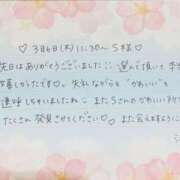 ♡ 3月6日(木)11:30〜 S様 ♡
先日はありがとうございました：選んで頂いて
しかったです♡。失礼ながらも"かわいい"と
連呼しちゃいましたね またSさんのかわいい
たくさん発見させてください♡ また会えますように